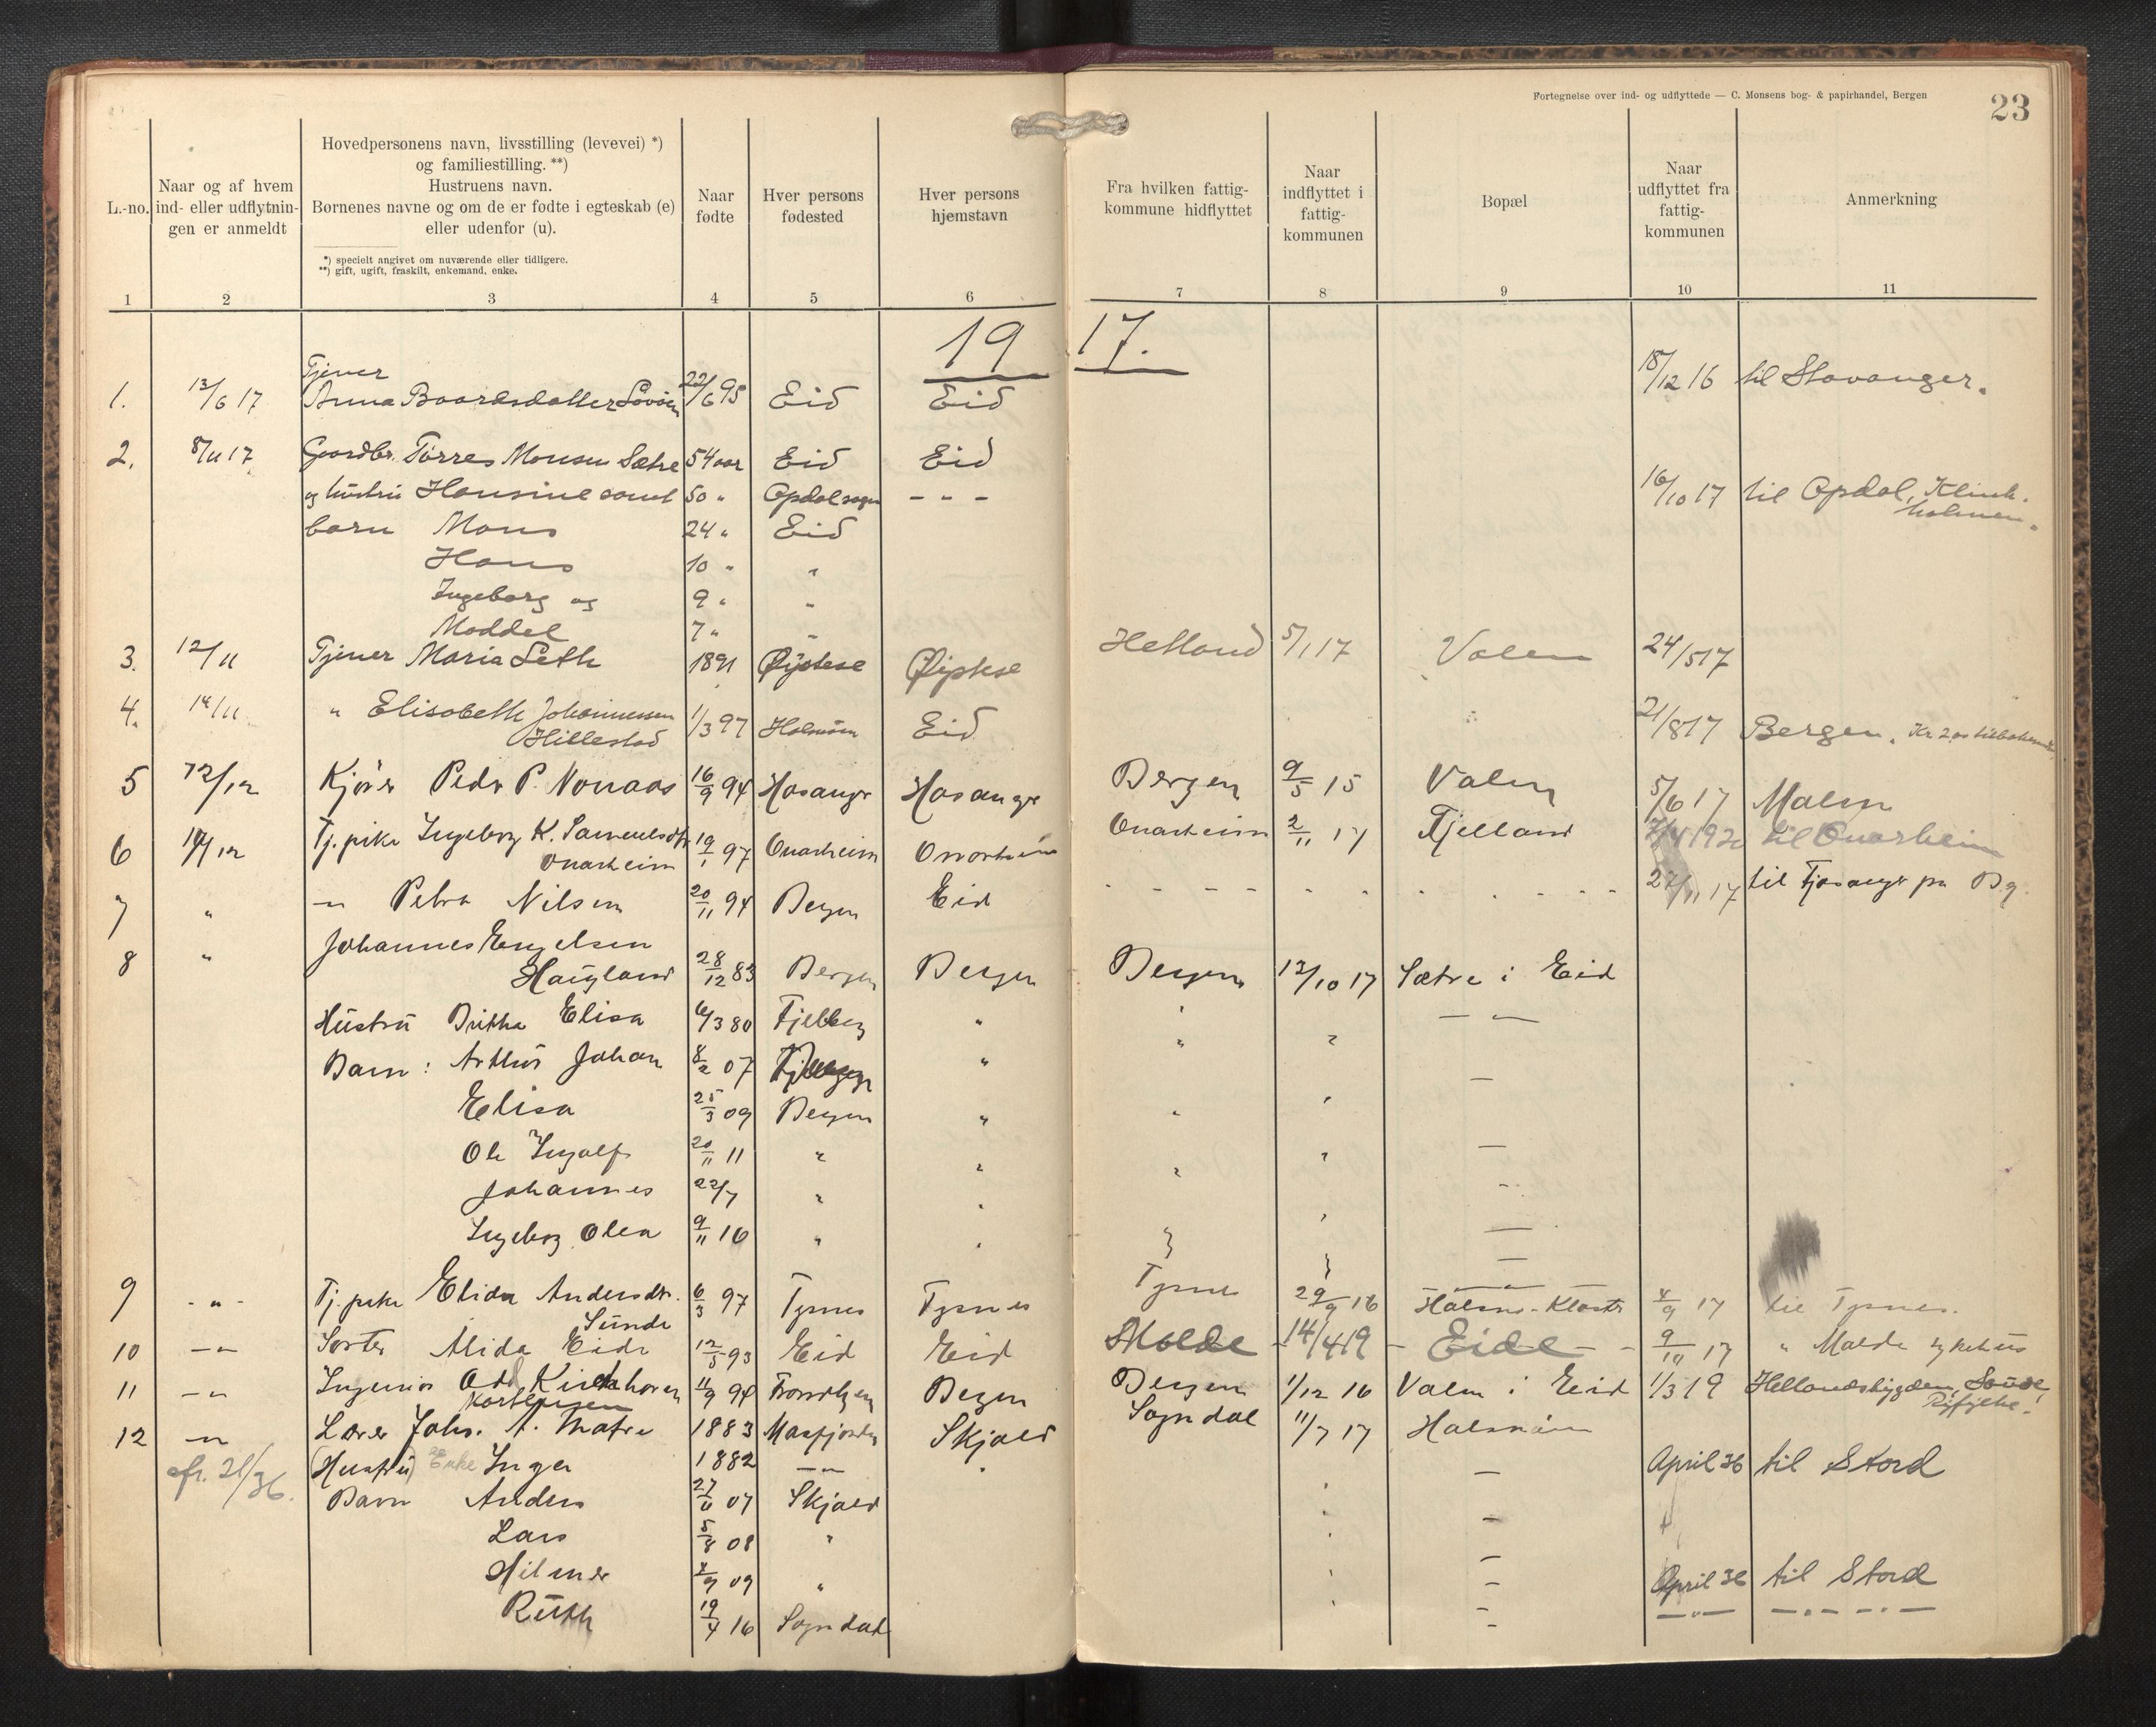 Fortegnelse over ind- og udflyttede — C. Monsens bog- & papirhandel, Bergen
23
L.-no.
Naar og af hvem ind- eller udflytnin-gen er anmeldt
Hovedpersonens navn, livsstilling (levevei) *)
og familiestilling. **)
Hustruens navn.
Børnenes navne og om de er fødte i egteskab (e)
eller udenfor (u).
*) specielt angivet om nuværende eller tidligere.
**) gift, ugift, fraskilt, enkemand, enke.
Naar fødte
Hver persons fødested
Hver persons hjemstavn
Fra hvilken fattig-kommune hidflyttet
Naar indflyttet i fattig-kommunen
Bopæl
Naar udflyttet fra fattig-kommunen
Anmerkning
1 2 3 4 5 6 7 8 9 10 11
19 17.
Tjener
1. 13/6 17 Anna Baardsdatter 22/6 95 Eid Eid 18/12 16 til Stavanger.
2. 8/11 17 Gaardbr. Tørres Monsen Sætre 54 aar Eid Eid
og hustru Hansine samt 50 " Opdal sogn - - - 16/10 17 til Opdal, Klink-
holmen.
barn Mons 24 " Eid
Hans 10 " "
Ingeborg og 9 " "
Moddel 7 " "
3. 12/11 Tjener Maria Seth 1891 Øystese Øistese Helland 5/1 17 Valen 24/5 17
4. 14/11 " Elisabeth Johannessen
Hillestad 1/3 97 Halsnøen Eid 21/8 17 Bergen. Kr 2.00
5 12/12 Kjører Peder P. Nonaas 16/9 94 Hosanger Hosanger Bergen 9/5 15 Valen 5/6 17 Malen
6 14/12 Tj. pike Ingeborg K. Samuelsdtr
Onarheim 19/1 97 Onarheim Onarheim Onarheim 2/11 17 Fjelland til Onarheim
7 " -"- Petra Nilsen 20/11 94 Bergen Eid - - - - 27/11 17 til Fjøsanger pr Bg.
8 " Johannes Engelsen
Haugland 28/12 83 Bergen Bergen Bergen 12/10 17 Sætre i Eid
Hustru Britha Elisa 6/3 80 Fjelberg " " -"-
Barn: Arthur Johan 8/2 07 " " " -
Elisa 25/3 09 Bergen " " " -
Ole Ingolf 20/11 11 " " " " -
Johannes 22/7 " " " -
Ingeborg Olea 9/11 16 " " " -
9 -"- Tj. pike Elida Andersdtr.
Sunde 6/3 97 Tysnes Tysnes Tysnes 29/9 16 Halsnø-Kloster 4/9 17 til Tysnes.
10 -"- Søster Alida Eide 12/5 93 Eid Eid Molde - 14/4 19 - Eide - - 9/10 17 " Molde sykehus
11 -"- Ingeniør Odd Kirkhorn
Kortgaen 11/9 94 Trondhjem Bergen Bergen 1/12 16 Valen i Eid 1/3 19 Hellandsbygden, Saude,
Ryfylke.
12 -"- Lærer Johs. A. Matre 1883 Masfjorden Skjold Sogndal 11/7 17 Halsnøen
cfr. 21/36. (Hustru) Enke Inga 1882 -"- " - April 36 til Stord
Barn Anders 07 Skjold " -
Lars 5/8 08 " " -
Hilmer 09 " " - April 36 til Stord
Ruth 19/4 16 Sogndal " - -"- - - -